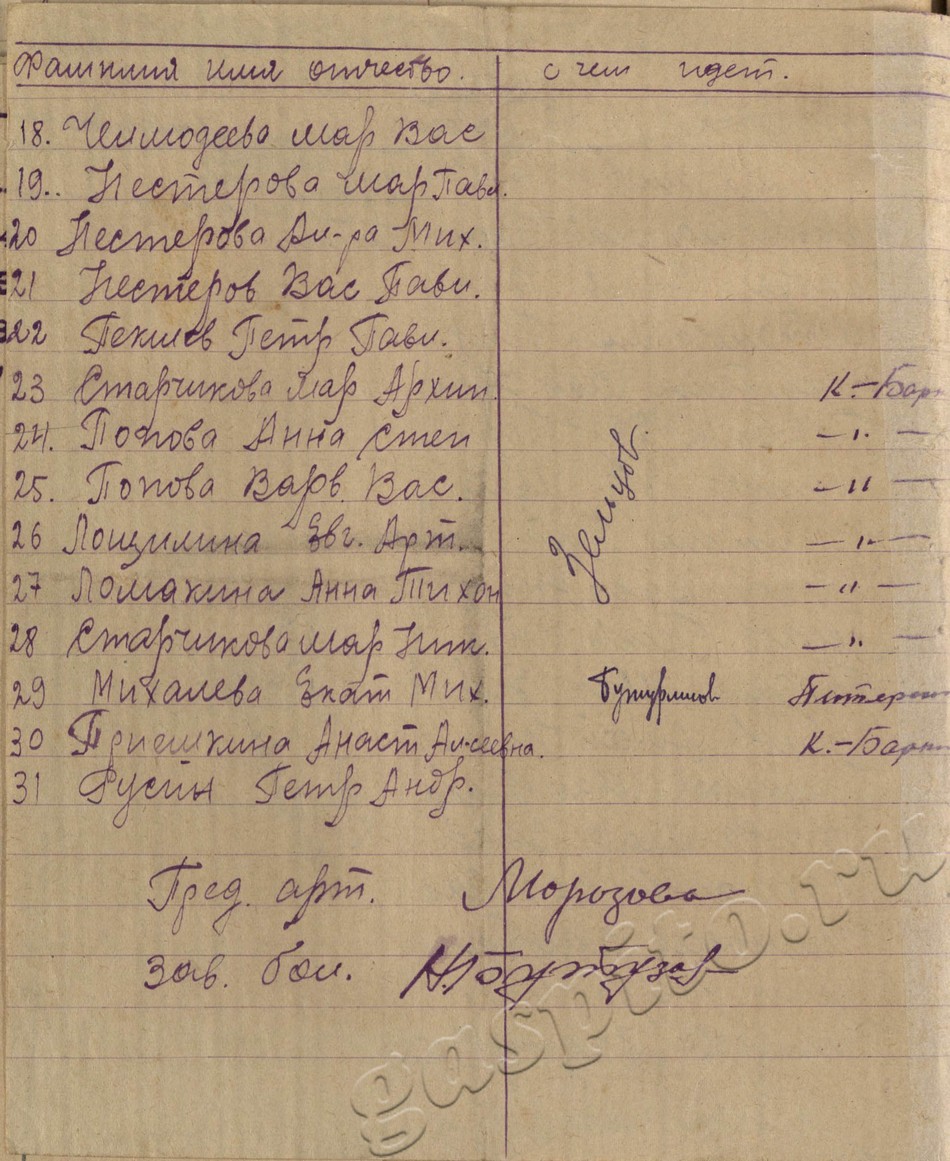 Фамилия имя отчество. с чем идет.
18. Чемодеева Мар Вас
19.. Нестерова Мар Павл.
20 Нестерова Ал-ра Мих.
21 Нестеров Вас Павл.
22 Петр Павл.
23 Старчикова Мар Архип. К.-Бар
24. Попова Анна Степ — " —
25. Попова Варв. Вас. — " —
26 Лощилина Евг. Арт. — " —
27 Ломакина Анна Тихон — " —
28 Старчикова Мар Ник. — " —
Зельцов.
29 Михалева Екат Мих. Бутурлинов
30 Анаст Ал-сеевна. К.-Бар
31 Русин Петр Андр.
Пред. арт. Морозова
Зав. бол.
gaspito.ru